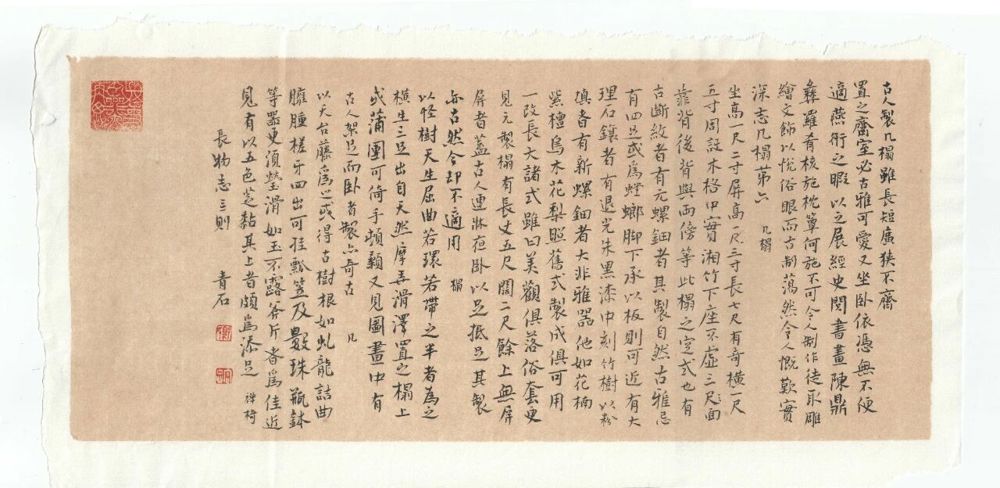 古人製几榻雖長短廣狹不齊
置之齋室必古雅可愛又坐臥依憑無不便
適燕衎之暇以之展經史閱書畫陳鼎
彝羅肴核施枕簟何施不可今人制作徒取雕
繪文飾以悅俗眼而古制蕩然令人慨歎實
深志几榻第六 几榻
坐高一尺二寸屏高一尺三寸長七尺有奇橫一尺
五寸周設木格中實湘竹下座不虛三尺面
靠背後背與兩傍等此榻之定式也有
古斷紋者有元螺鈿者其製自然古雅忌
有四足或為螳螂脚下承以板則可近有大
理石鑲者有退光朱黑漆中刻竹樹以粉
填者有新螺鈿者大非雅器他如花楠
紫檀烏木花梨照舊式製成俱可用
一改長大諸式雖曰美觀俱落俗套更
見元製榻有長丈五尺闊二尺餘上無屏
屏者蓋古人連牀夜臥以足抵足其製
亦古然今却不適用 榻
以怪樹天生屈曲若環若帶之半者為之
橫生三足出自天然摩弄滑澤置之榻上
或蒲團可倚手頓顙又見圖畫中有
古人架足而臥者製亦奇古 几
以天台藤為之或得古樹根如虬龍詰曲
臃腫槎牙四出可挂瓢笠及數珠瓶鉢
等器更須瑩滑如玉不露斧斤者為佳近
見有以五色芝黏其上者頗為添足 禪椅
長物志三則 青石